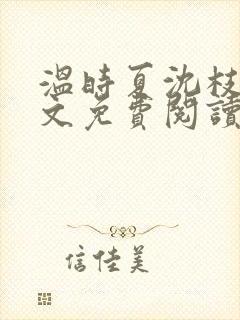 溫時夏沈枝
文免費閱讀
信佳美